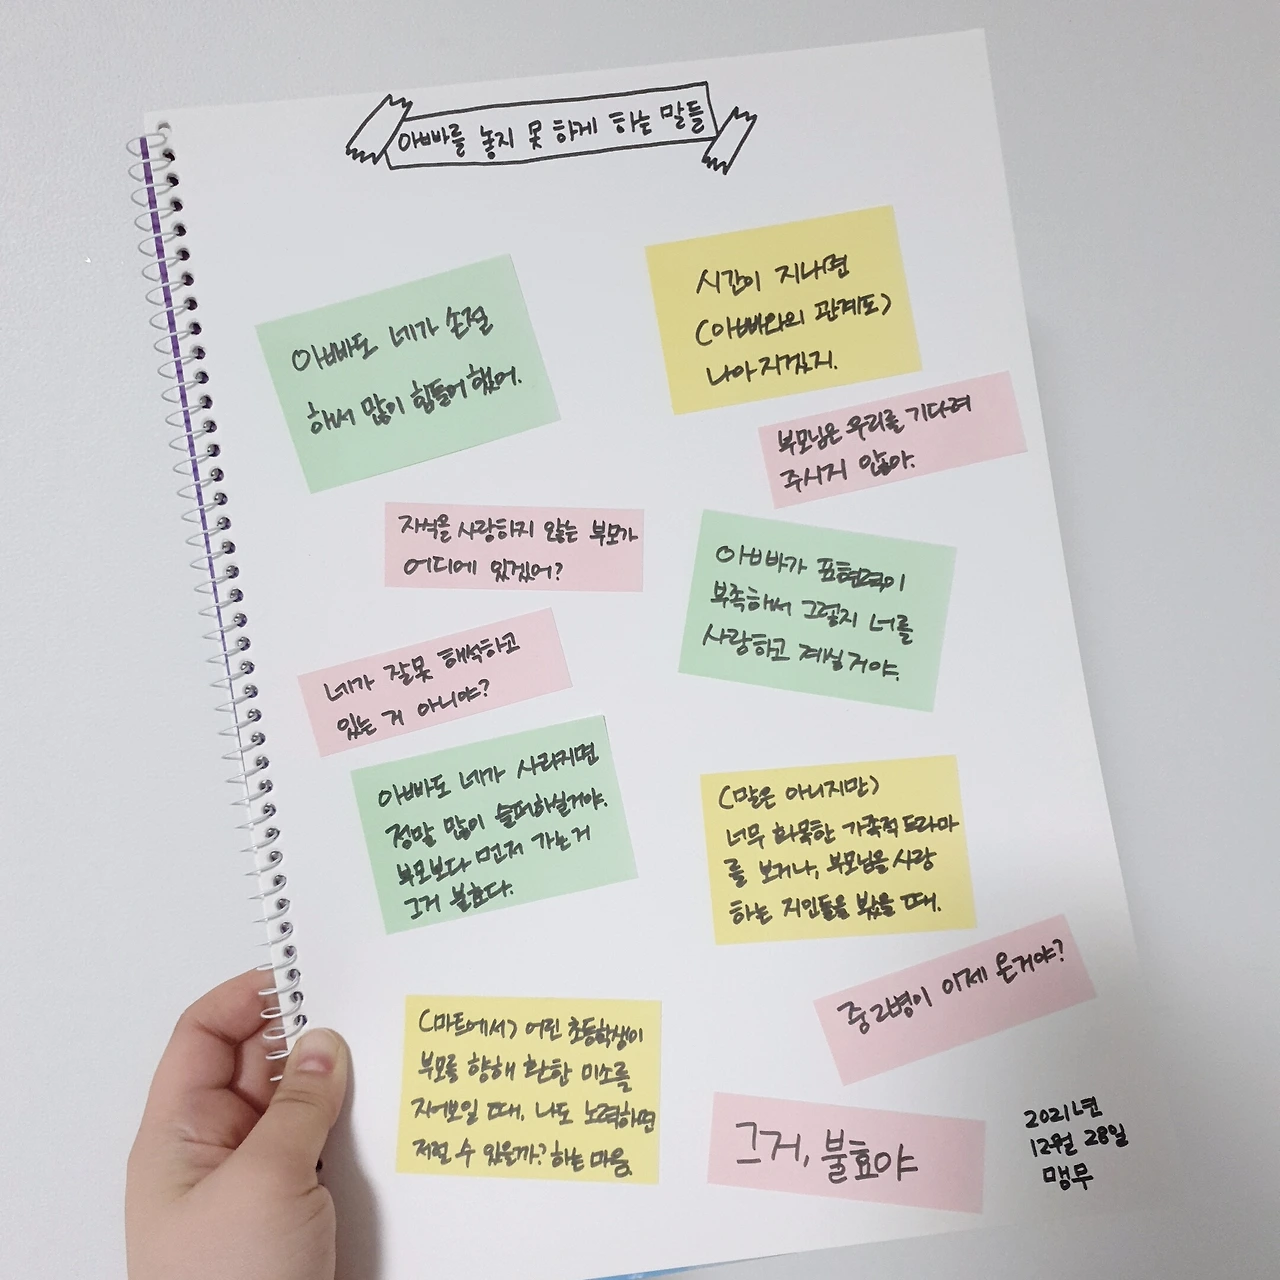 아빠를 놓지 못 하게 하는 말들
아빠도 네가 손절
해서 많이 힘들어 했어.
시간이 지나면
(아빠와의 관계도)
나아지겠지.
부모님은 우리를 기다려
주시지 않아.
자식을 사랑하지 않는 부모가
어디에 있겠어?
아빠가 표현력이
부족해서 그렇지 너를
사랑하고 계실거야.
네가 잘못 해석하고
있는 거 아니야?
아빠도 네가 사라지면
정말 많이 슬퍼하실거야.
부모보다 먼저 가는거
그거 불효다.
(말은 아니지만)
너무 화목한 가족적 드라마
를 보거나, 부모님을 사랑
하는 지인들을 봤을 때.
중2병이 이제 온거야?
(마트에서) 어린 초등학생이
부모를 향해 환한 미소를
지어보일 때, 나도 노력하면
저럴 수 있을까? 하는 마음.
그거, 불효야
2021년
12월 28일
맹무